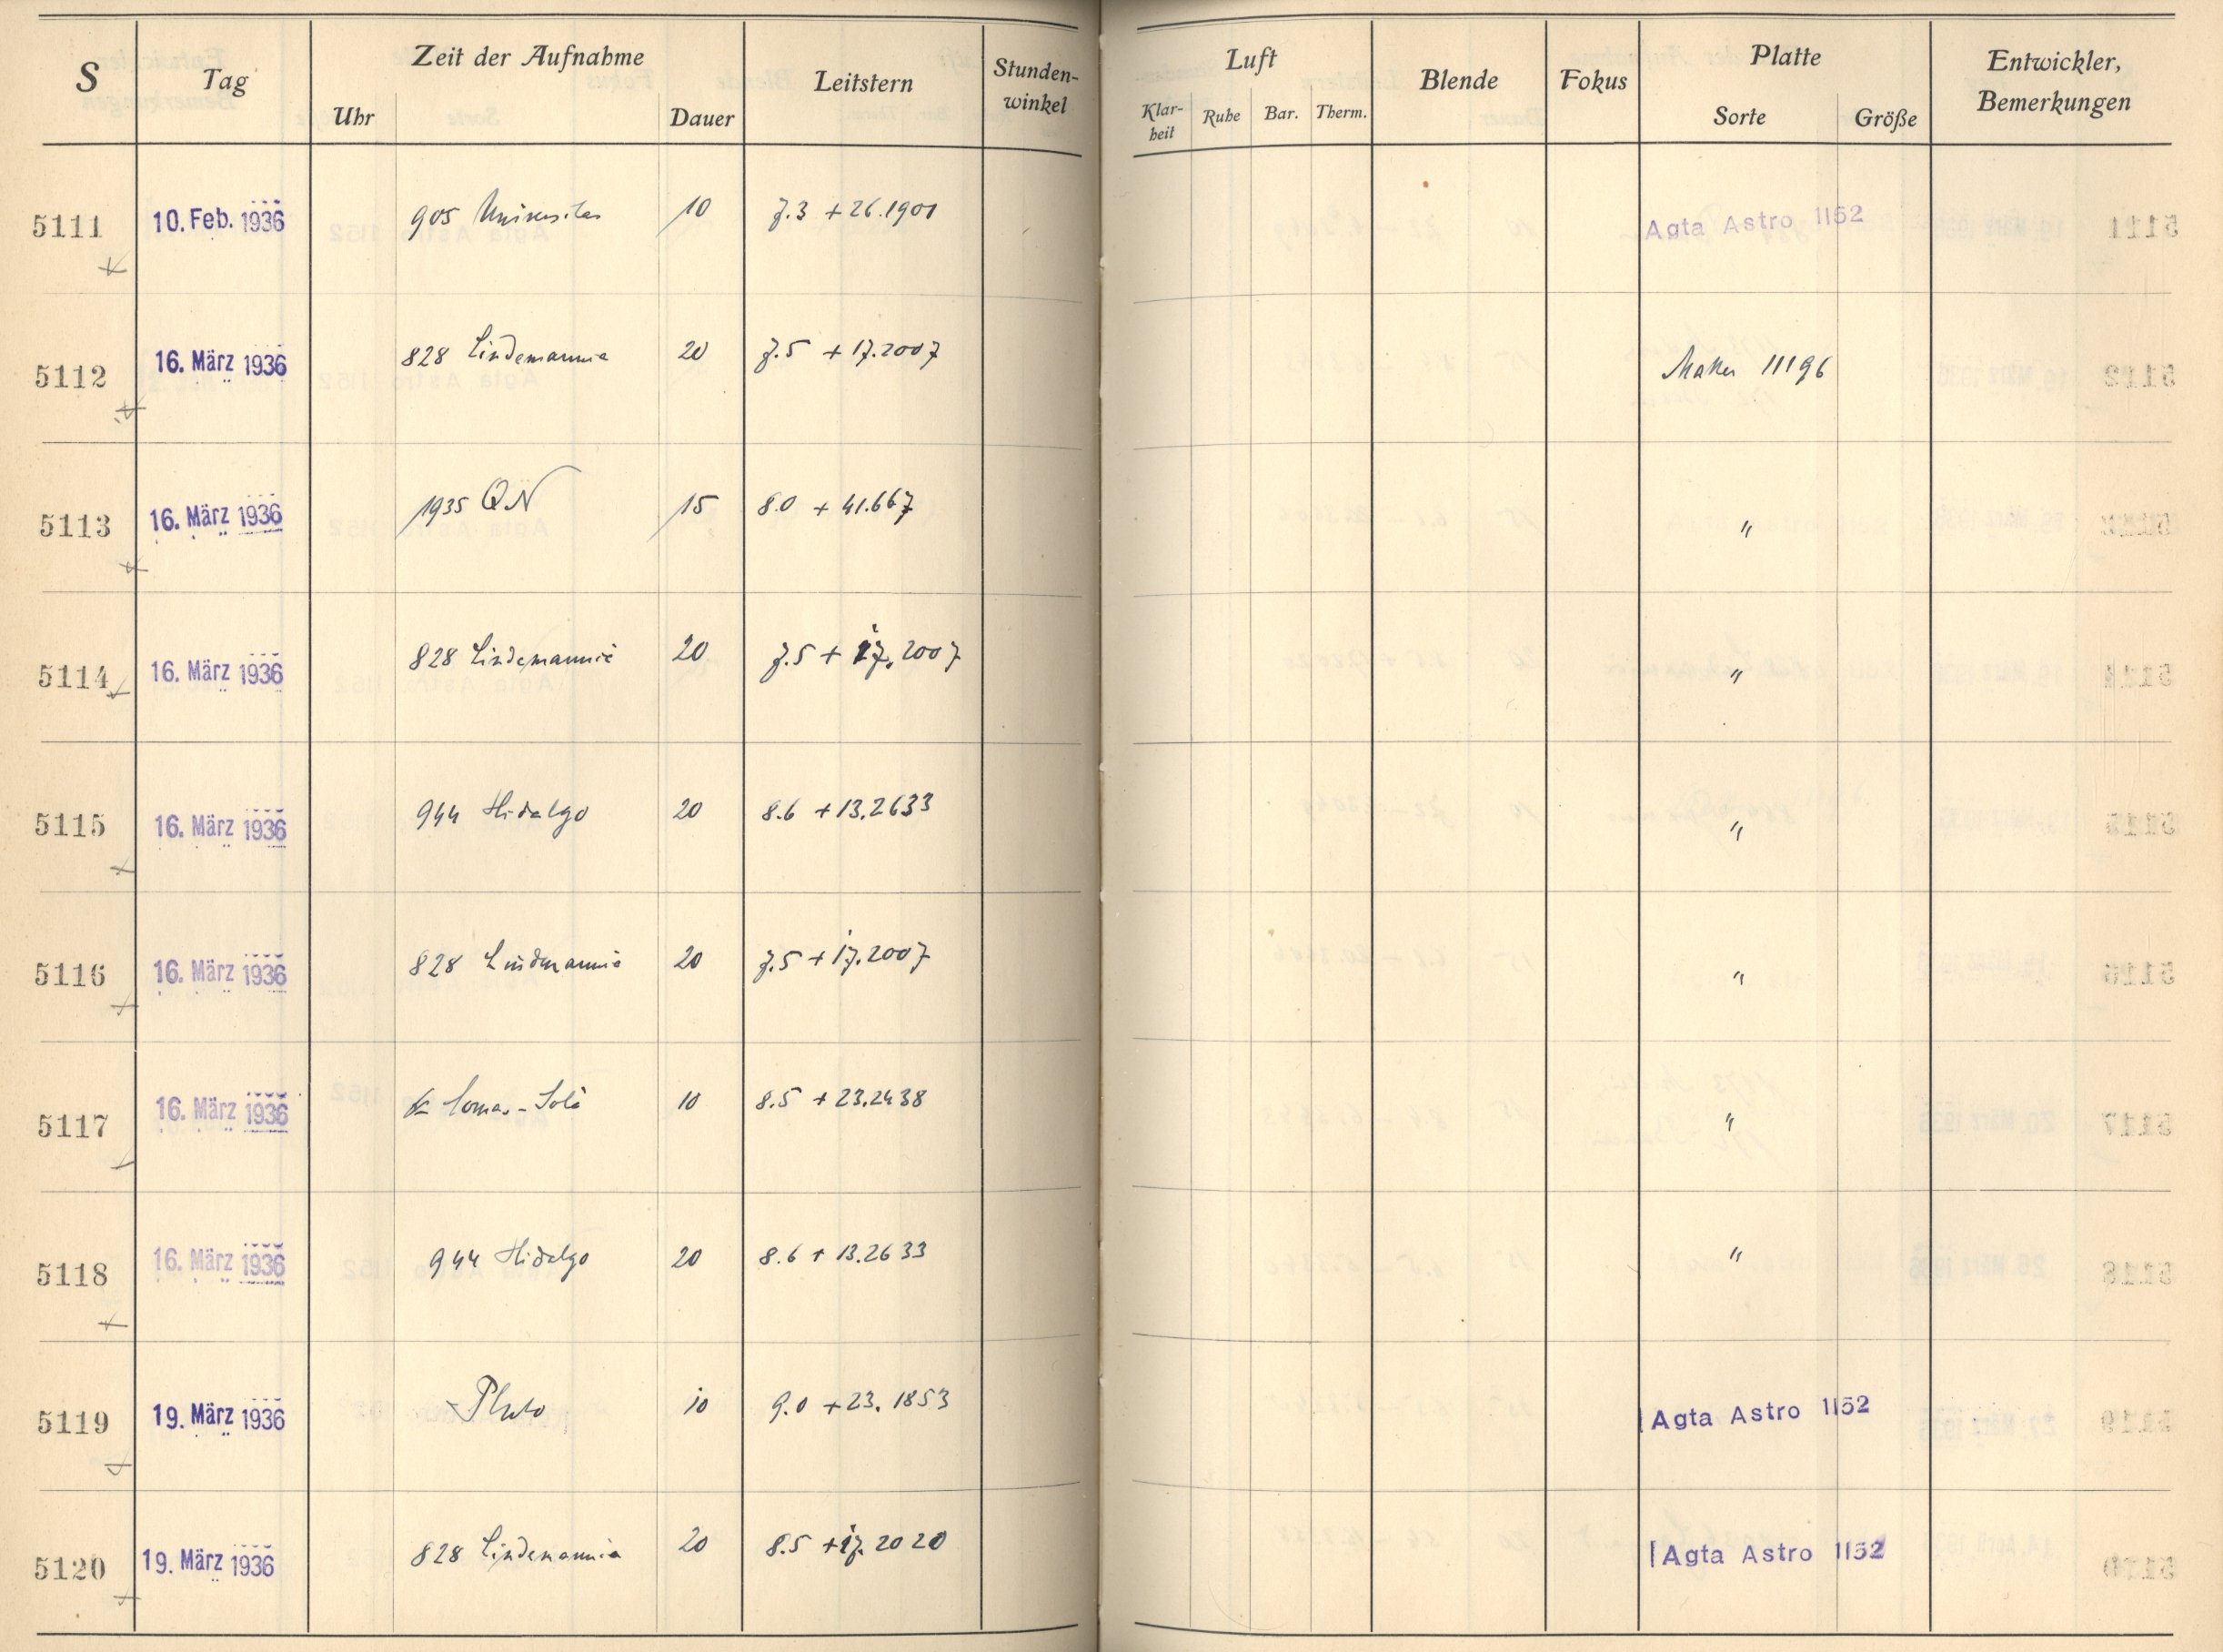 S Tag Zeit der Aufnahme Leitstern Stunden-winkel Luft Blende Fokus Platte Entwickler, Bemerkungen
Uhr Dauer Klar-heit Ruhe Bar. Therm. Sorte Größe
5111 10. Feb. 1936 905 Universitas 10 7.3 +26.1901 Agfa Astro 1152
5112 16. März 1936 828 Lindemannia 20 7.5 +17.2007 11196
5113 16. März 1936 1935 QN 15 8.0 +41.667 "
5114 16. März 1936 828 Lindemannia 20 7.5 +17.2007 "
5115 16. März 1936 944 Hidalgo 20 8.6 +13.2633 "
5116 16. März 1936 828 Lindemannia 20 7.5 +17.2007 "
5117 16. März 1936 Comas-Solà 10 8.5 +23.2438 "
5118 16. März 1936 944 Hidalgo 20 8.6 +13.2633 "
5119 19. März 1936 Pluto 10 9.0 +23.1853 Agfa Astro 1152
5120 19. März 1936 828 Lindemannia 20 8.5 +17.2020 Agfa Astro 1152